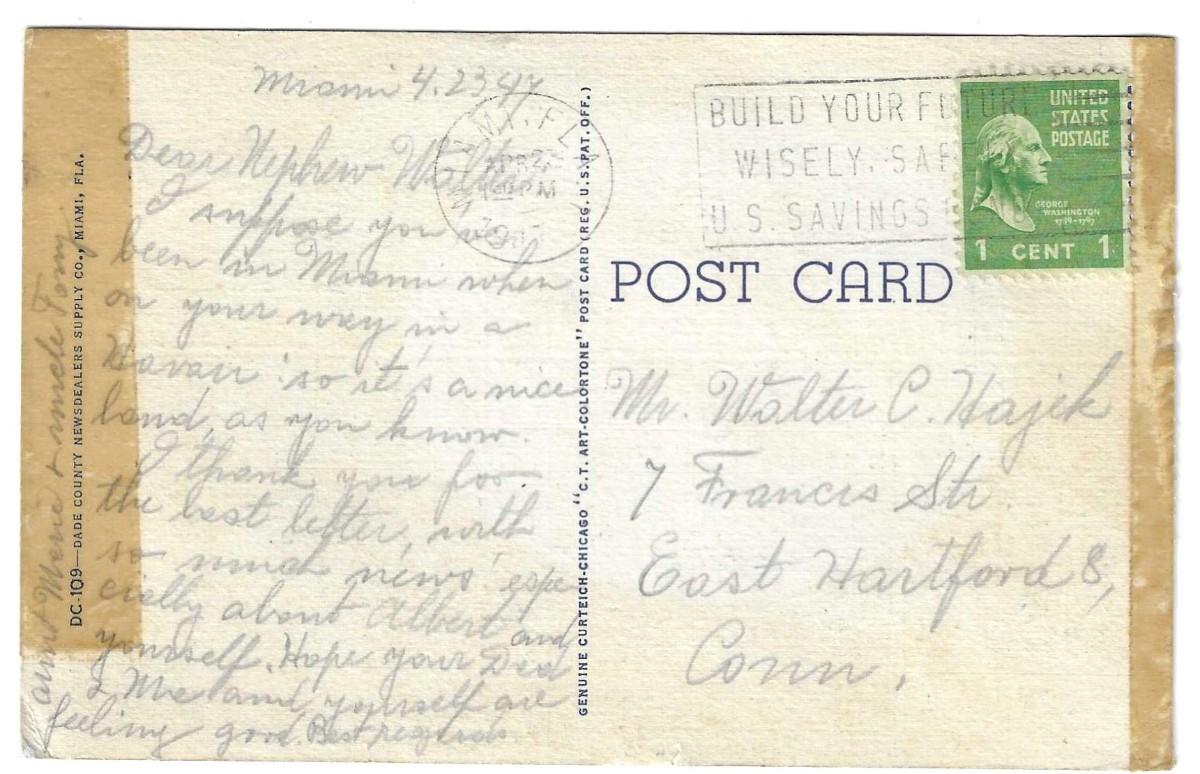 Miami 4.23.47
Dear Nephew Walter
I suppose you
been in Miami when
on your way in a
Havaii so it's a nice
land, as you know.
I thank you for
the last letter, with
so much news' espe
cially about Albert and
yourself. Hope your Dad
& Me and yourself are
feeling good. Best regards
aunt Marie & uncle Tony
DC-109—DADE COUNTY NEWSDEALERS SUPPLY CO., MIAMI, FLA.
GENUINE CURTEICH-CHICAGO "C.T. ART-COLORTONE" POST CARD (REG. U.S. PAT. OFF.)
MIAMI, FLA
APR 23
PM
BUILD YOUR FUTURE
WISELY, SAF
U S SAVINGS
UNITED
STATES
POSTAGE
GEORGE
WASHINGTON
1789-1797
1 CENT 1
POST CARD
Mr. Walter C. Hajek
7 Francis Str
East Hartford 8,
Conn,